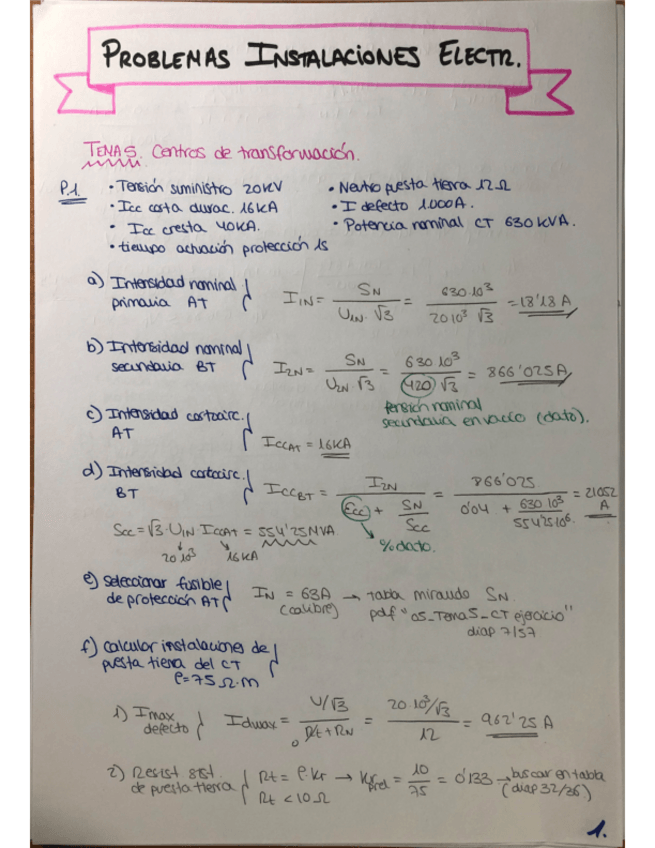 PROBLEMAS INSTALACIONES ELECTR.
TEMA 5. Centros de transformación.
P.1. • Tensión suministro 20KV • Neutro puesta tierra 12Ω
• Icc corta durac. 16KA • I defecto 1.000A.
• Icc cresta 40KA. • Potencia nominal CT 630KVA.
• tiempo actuación protección 1s
a) Intensidad nominal primaria AT I1N = SN / (U1N·√3) = 630·10³ / (20·10³ √3) = 18'18 A
b) Intensidad nominal secundaria BT I2N = SN / (U2N·√3) = 630·10³ / (420 √3) = 866'025A
tensión nominal
secundaria en vacío (dato).
c) Intensidad cortocirc. AT ICCAT = 16KA
d) Intensidad cortocirc. BT ICCBT = I2N / (Ecc + SN/Scc) = 866'025 / (0'04 + 630·10³/554'25·10⁶) = 21052 A
Scc = √3·U1N·ICCAT = 554'25MVA
20·10³ 16KA
% dato.
e) Seleccionar fusible de protección AT IN = 63A (calibre) → tabla mirando SN.
pdf "05_Tema5_CT ejercicio"
diap 7/37
f) Calcular instalaciones de
puesta tierra del CT
ρ = 75 Ω·m
1) Imax defecto Idmax = U/√3 / (Rt + RN) = 20·10³/√3 / 12 = 962'25 A
0
2) Resist sist. de puesta tierra Rt = ρ·Kr Rt < 10Ω → Kr = 10/75 = 0'133 → buscar en tabla
(diap 32/36)
1.